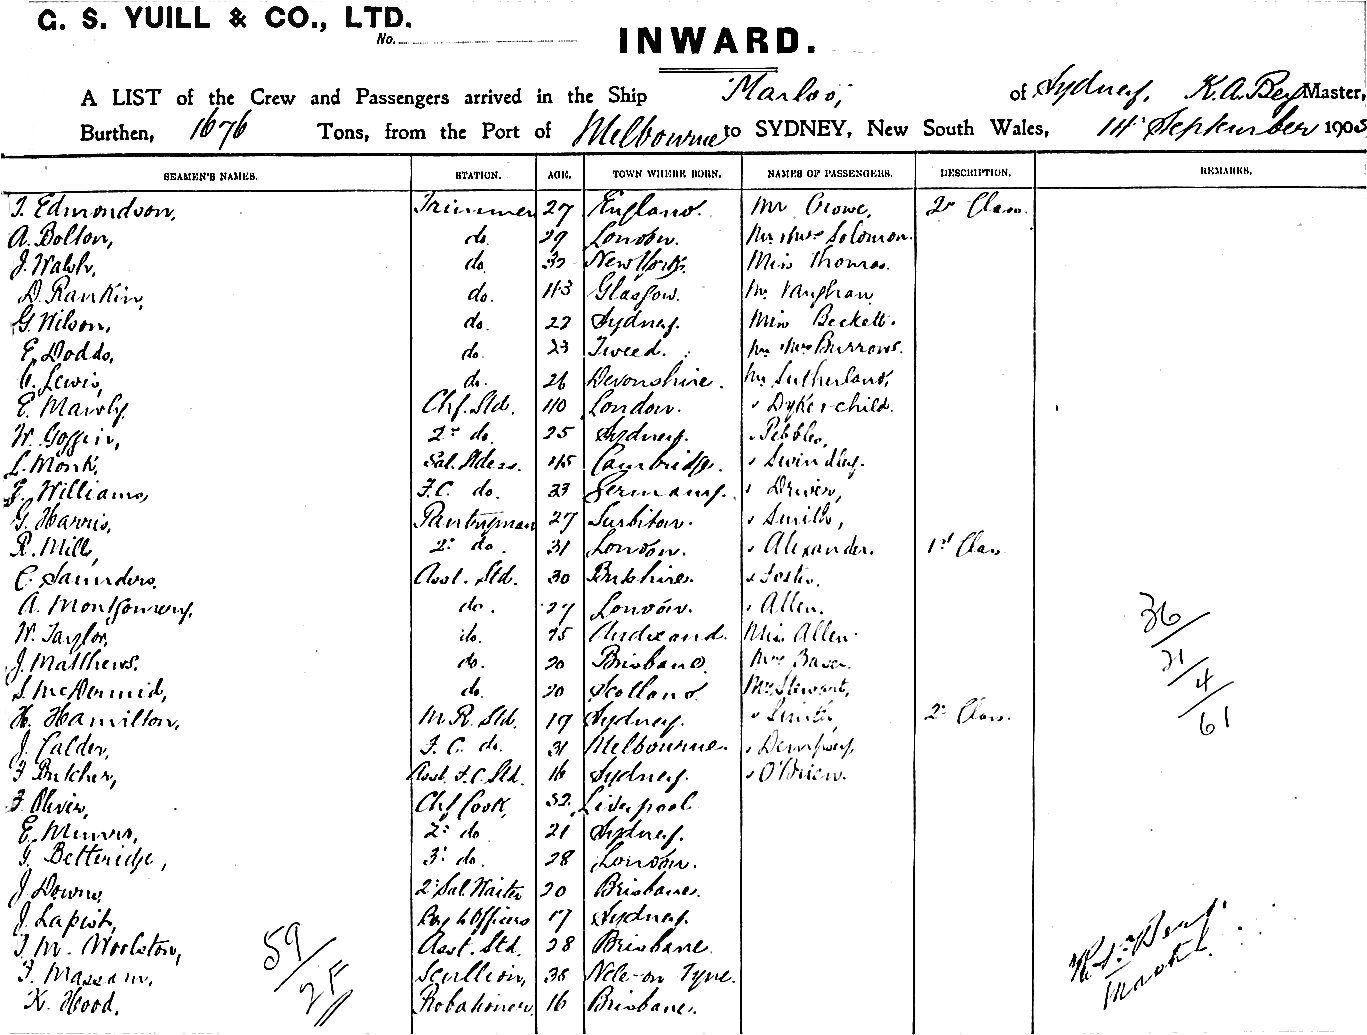 G. S. YUILL & CO., LTD.
No.
INWARD.
A LIST of the Crew and Passengers arrived in the Ship Marloo, of Sydney, K. A. Master,
Burthen, 1676 Tons, from the Port of Melbourne to SYDNEY, New South Wales, 14 September 1903
SEAMEN'S NAMES. STATION. AGE. TOWN WHERE BORN. NAMES OF PASSENGERS. DESCRIPTION. REMARKS.
T. Edmondson, Trimmer 27 England. Mr Crowe, 2nd Class.
A. Bolton, do. 29 London. Mr Mrs Solomon.
J. Walsh, do. New York. Miss Thomas.
D. Rankin, do. 43 Glasgow. Mr Vaughan
G. Wilson, do. 22 Sydney. Miss Beckett.
E. Dodds, do. 23 Tweed. Mr Mrs Burrows.
Lewis, do. 26 Devonshire. Mr Sutherland,
E. Mawby Chf. Std. 40 London. " Dyke & child.
W. Goffin, 2nd do. 25 Sydney. " Pebbles,
L. Monk, Sal. 45 Cambridge. " Swindley.
F. Williams, F.C. do. 33 Germany. " Driver,
G. Harris, Pantryman 27 Surbiton. " Smith,
R. Mill, 2nd do. 31 London. " Alexander. 1st Class
C. Saunders, Asst. Std. 30 Berkshire. " Foster.
A. Montgomery, do. 27 London. " Allen.
W. Taylor, do. 25 Miss Allen.
J. Matthews. do. 20 Brisbane. Mrs
S. McDermid, do. 20 Scotland Mr Stewart,
H. Hamilton, M. R. Std. 19 Sydney. " Smith, 2nd Class.
J. Calder, F. C. do. 31 Melbourne. " Dempsey,
F Butcher, Asst. F.C. Std. 16 Sydney. " O'Brien.
F. Oliver, Chf Cook, 32. Liverpool
E. Munro, 2nd do 21 Sydney.
G. Betteridge, 3rd do. 28 London.
J Downs, 2nd Sal. Waiter 20 Brisbane.
J. Lapish, Boy to Officers 17 Sydney.
T. M. Woolston, Asst. Std. 28 Brisbane
F. Massam, Scullion, 38 Ncle-on Tyne.
K. Hood. Probationer 16 Brisbane.
36
21
4
61
59
25